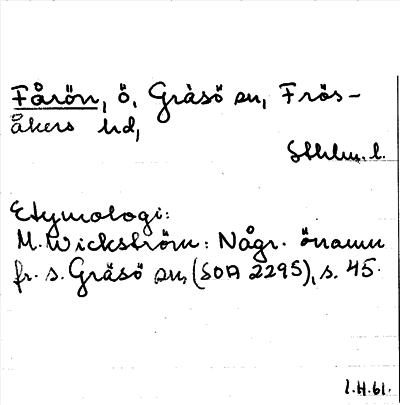 Fårön, ö, Gräsö sn, Frös-
åkers hd,
Sthlm. l.
Etymologi:
M. Wickström: Någr. önamn
fr. s. Gräsö sn, (SOA 2295), s. 45.
I.H.61.